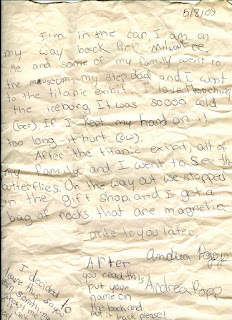 5/8/09
I'm in the car, I am on
my way back from Milwakee
Me and some of my family went to
the museum, my step dad and I went
to the titanic exibit. I loved touching
the iceburg. It was soooo cold
(ber). If I kept my hand on it
too long it hurt (ow).
After the titanic exibit, all of
my family and I went to see the
butterflies. On the way out we stopped
in the gift shop, and I got a
bag of rocks that are magnetic.
Write to you later,
Andrea Popp
After
you read this
put your
name on
the back and
put it back please!
Andrea Popp
I decided to